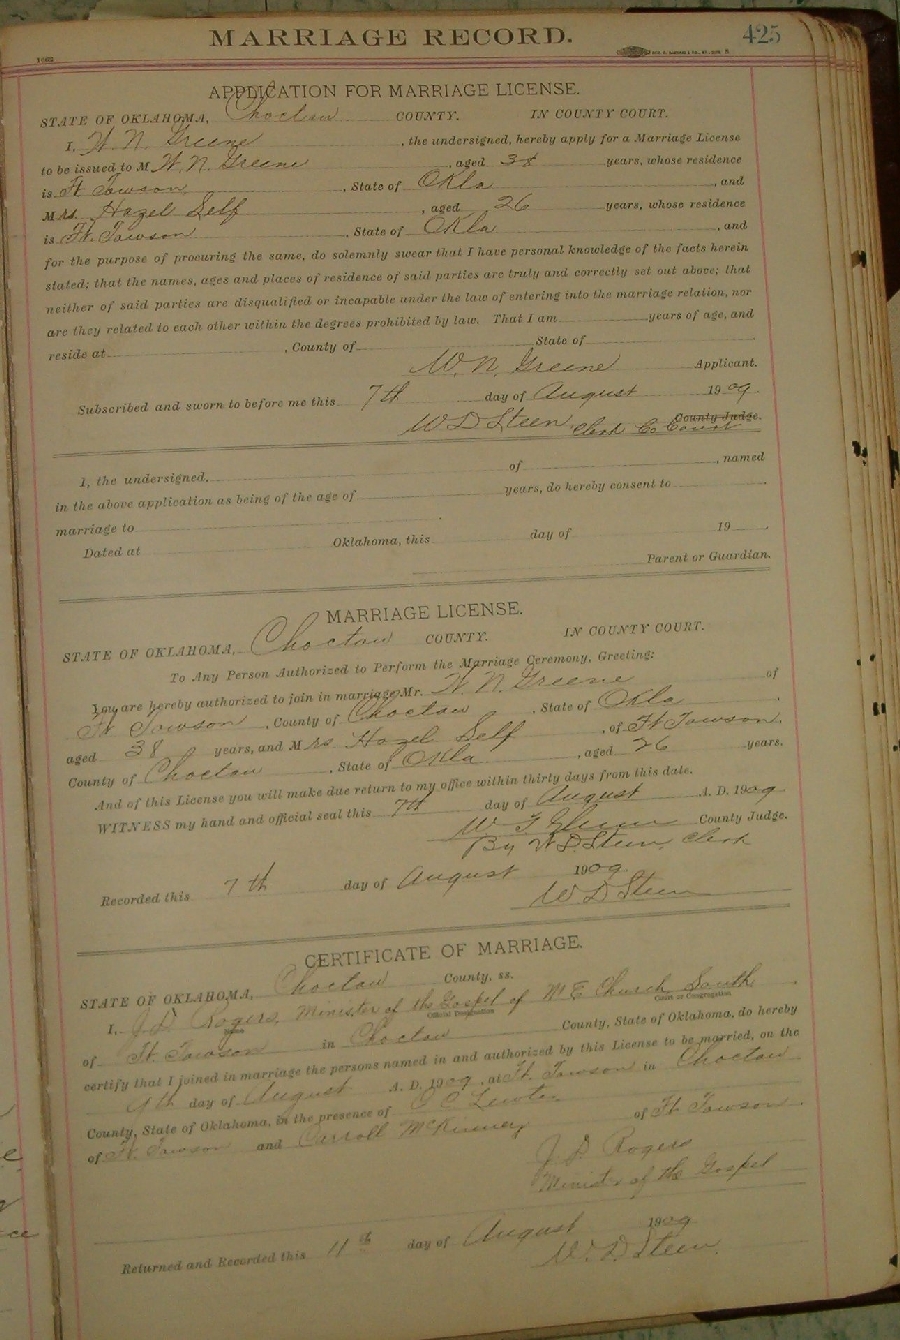 MARRIAGE RECORD. 425
APPLICATION FOR MARRIAGE LICENSE.
STATE OF OKLAHOMA, Choctaw COUNTY. IN COUNTY COURT.
I, W. N. Greene, the undersigned, hereby apply for a Marriage License
to be issued to M W. N. Greene, aged 38 years, whose residence
is Ft Towson, State of Okla, and
Mrs. Hazel Self, aged 26 years, whose residence
is Ft. Towson, State of Okla, and
for the purpose of procuring the same, do solemnly swear that I have personal knowledge of the facts herein
stated; that the names, ages and places of residence of said parties are truly and correctly set out above; that
neither of said parties are disqualified or incapable under the law of entering into the marriage relation, nor
are they related to each other within the degrees prohibited by law. That I am years of age, and
reside at , County of State of
W. N. Greene Applicant.
Subscribed and sworn to before me this 7th day of August 1909
W D Steen, Clerk Co Court County Judge.
I, the undersigned, of , named
in the above application as being of the age of years, do hereby consent to
marriage to
Dated at Oklahoma, this day of 19
Parent or Guardian.
MARRIAGE LICENSE.
STATE OF OKLAHOMA, Choctaw COUNTY. IN COUNTY COURT.
To Any Person Authorized to Perform the Marriage Ceremony, Greeting:
You are hereby authorized to join in marriage Mr. W. N. Greene of
Ft Towson, County of Choctaw, State of Okla,
aged 38 years, and Mrs Hazel Self, of Ft Towson,
County of Choctaw, State of Okla, aged 26 years.
And of this License you will make due return to my office within thirty days from this date.
WITNESS my hand and official seal this 7th day of August A. D. 1909
W T Glenn County Judge.
By W D Steen, Clerk
Recorded this 7th day of August 1909
W D Steen
CERTIFICATE OF MARRIAGE.
STATE OF OKLAHOMA, Choctaw County, ss.
I, J D Rogers, Minister of the Gospel of M E Church South
Official Designation
of Ft Towson in Choctaw County, State of Oklahoma, do hereby
certify that I joined in marriage the persons named in and authorized by this License to be married, on the
9th day of August A. D. 1909, at Ft. Towson in Choctaw
County, State of Oklahoma, in the presence of C C Lewter of Ft Towson
of Ft Towson and Carroll McKinney
J D Rogers
Minister of the Gospel
Returned and Recorded this 11th day of August 1909
W. D. Steen.